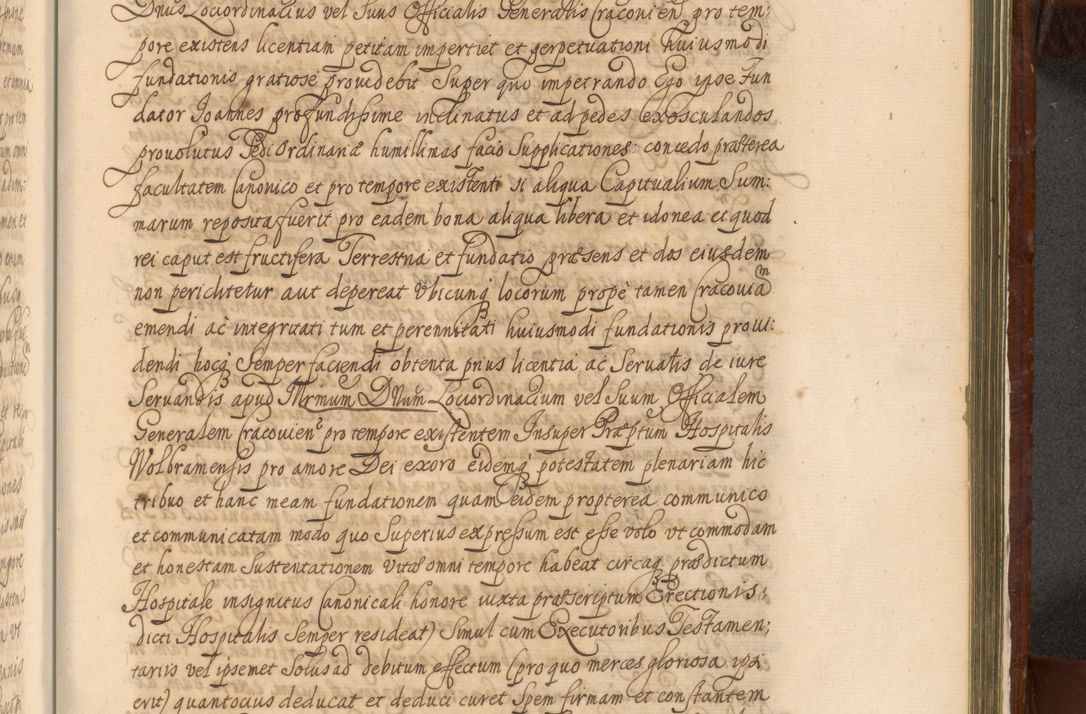 Dnus Lociordinacius vel Suus Officialis Generalis Cracovien pro tem:
pore existens licentiam petitam impertiet et perpetuationi Huiusmodi
fundationis gratiose providebit Super quo impetrando Ego ipse Fun
dator Joannes profundissime inclinatus et ad pedes exosculandos
provolutus Sedi Ordinariæ humillimas facio Supplicationes: concedo præterea
facultatem Canonico et pro tempore existenti si aliqua Capitualium Sum:
marum reposita fuerit pro eadem bona aliqua libera et idonea et quod
rei caput est fructifera Terrestria et fundatio præsens et dos eiusdem
non periclitetur aut depereat Vbicunq locorum propè tamen Cracoviam
emendi ac integritati tum et perennitati huiusmodi fundationis provi:
dendi hocq Semper faciendi obtenta prius licentia ac Servatis de iure
Servandis apud Illrmum Dnum Lociordinacium vel Suum Officialem
Generalem Cracovien pro tempore existentem Insuper Præptum Hospitalis
Wolbramensis pro amore Dei exoro eidemq potestatem plenariam hic
tribuo et hanc meam fundationem quam eidem propterea communico
et communicatam modo quo Superius expressum est esse volo vt commodam
et honestam Sustentationem vitæ omni tempore habeat circaq prædictum
Hospitale insignitus Canonicali honore iuxta præscriptum Erectionis
dicti Hospitalis Semper resideat) Simul cum Executoribus Testamen:
tariis vel ipsemet Solus ad debitum effectum (pro quo merces gloriosa ipsi
erit) quantocius deducat et deduci curet Spem firmam et constantem